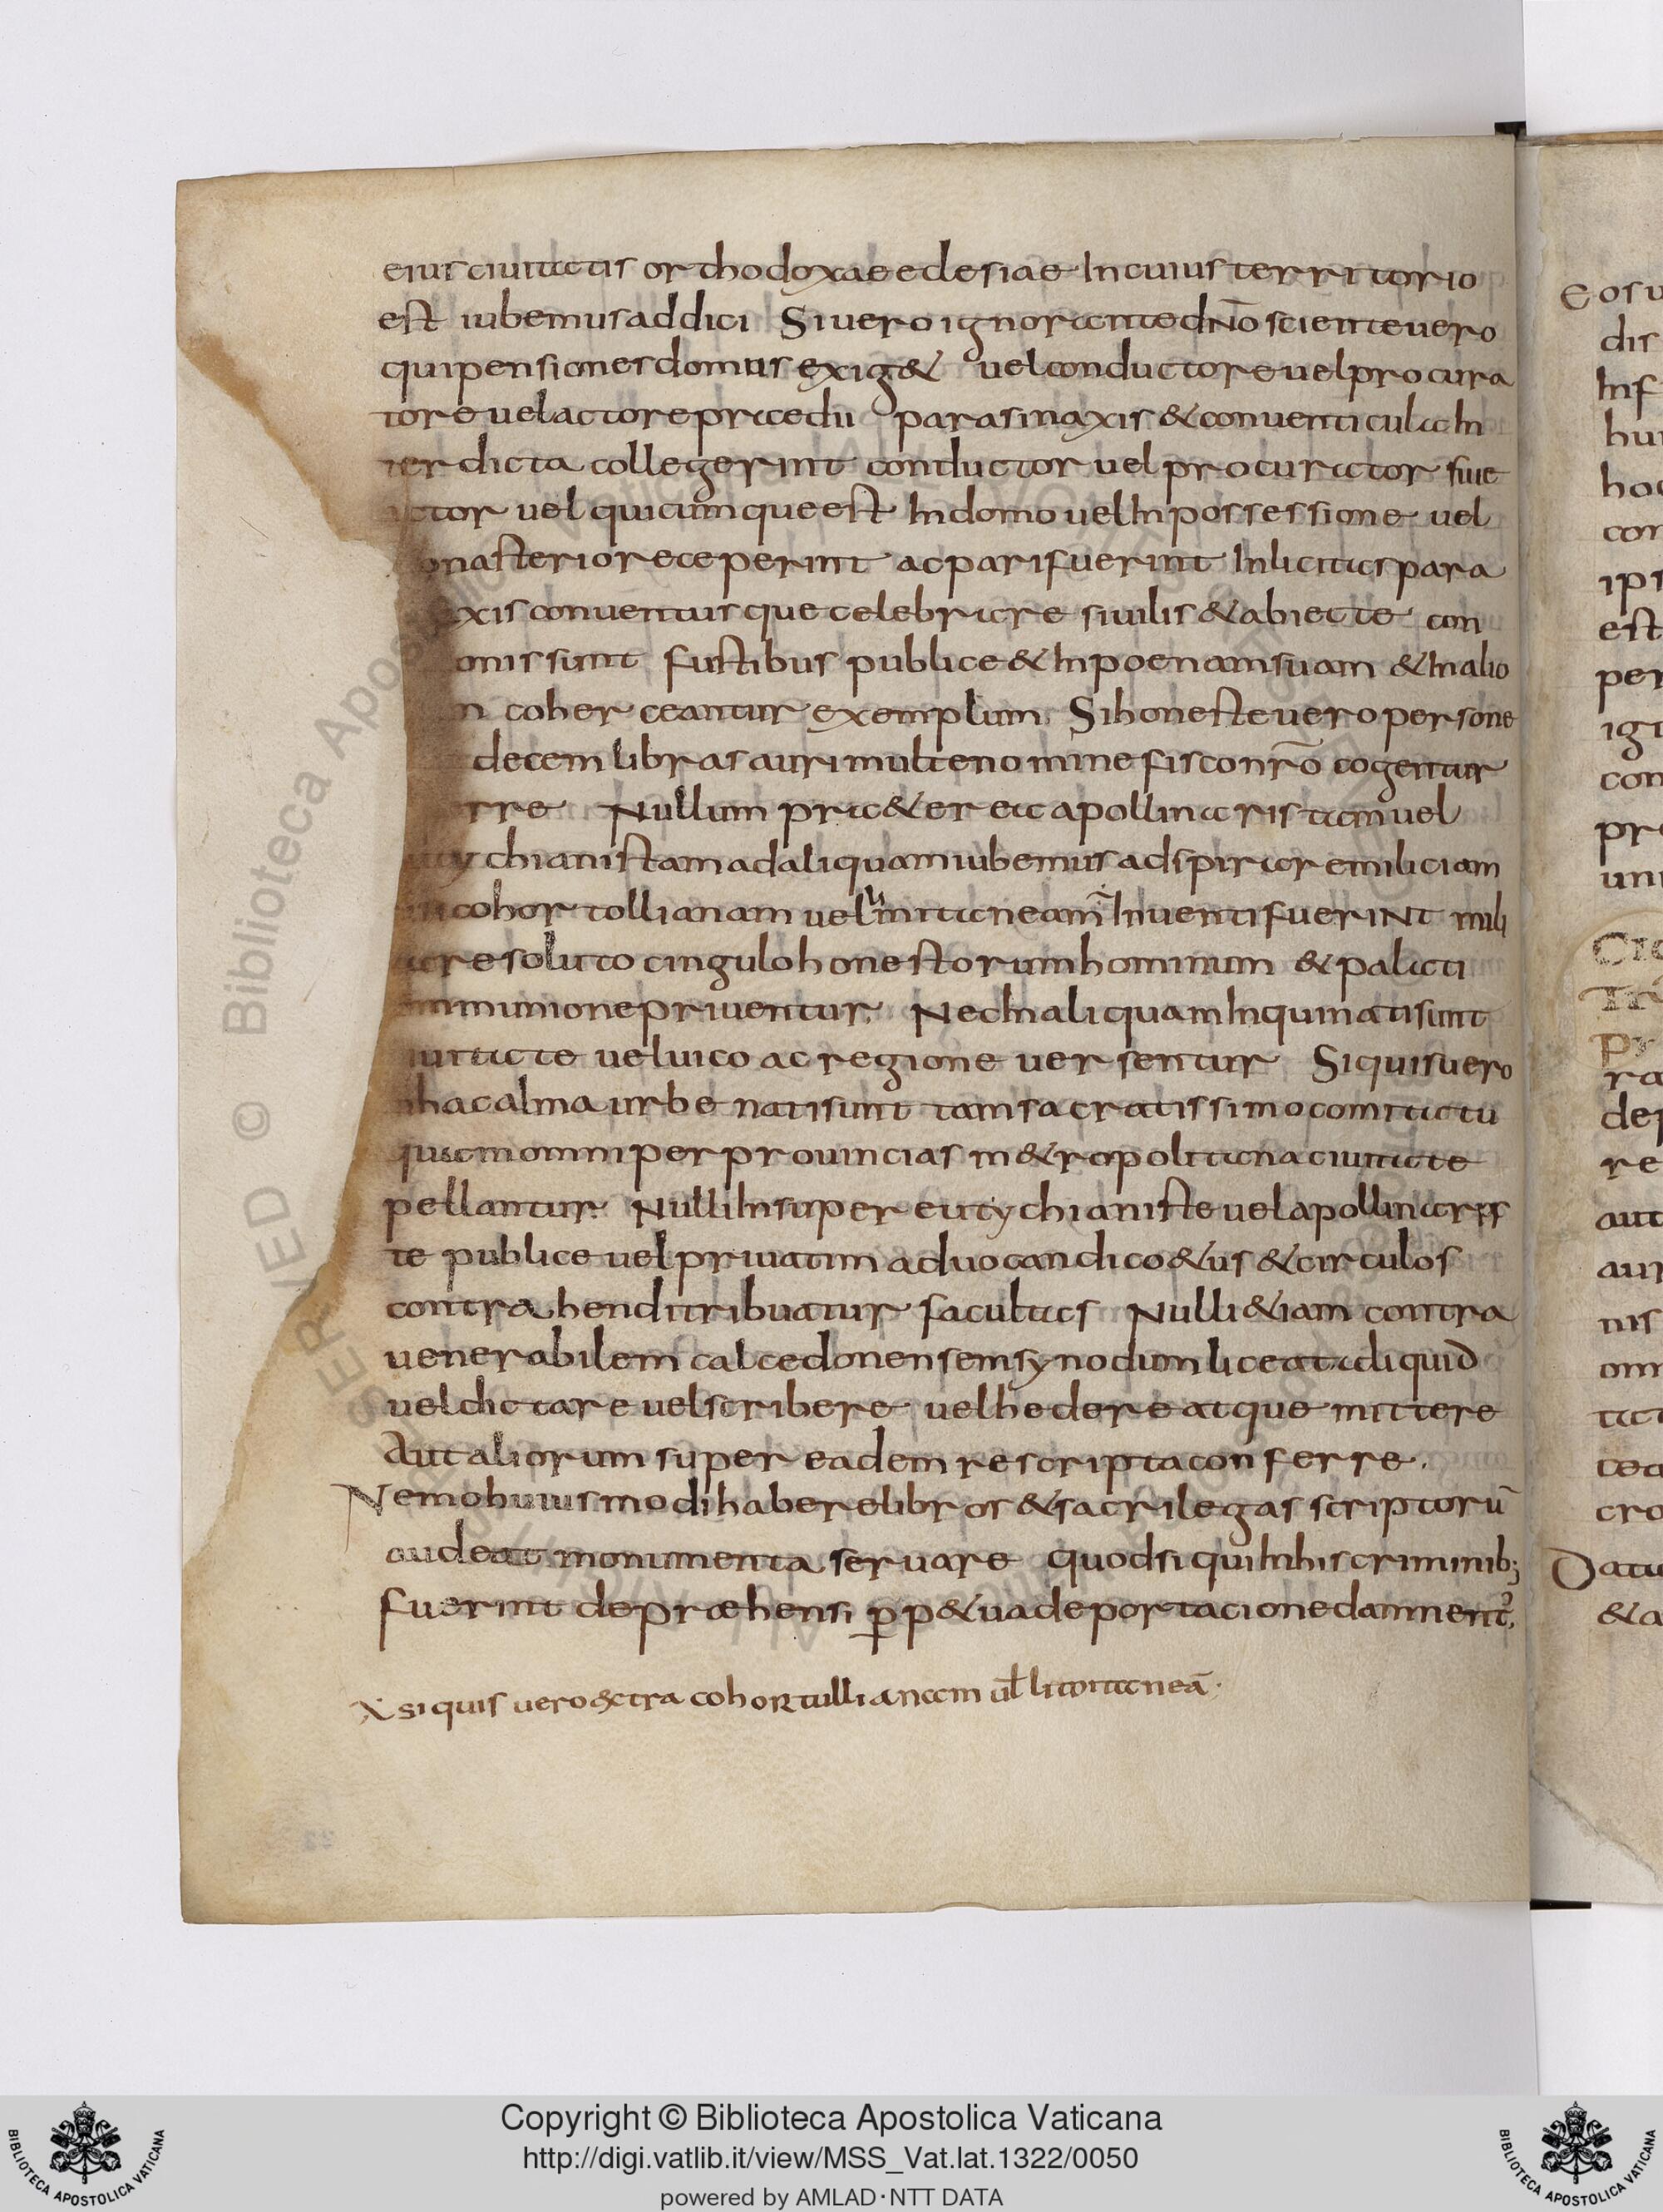 eius ciuitatis orthodoxae eclesiae In cuius territorio
est iubemus addici Si uero ignorante dn̄o sciente uero
qui pensiones domus exig& uel conductore uel procura
tore uel actore praedii parasinaxis & conuenticula In
terdicta collegerint conductor uel procurator siue
actor uel quicumque est In domo uel In possessione uel
onasterio receperint ac pari fuerint Inlicitas para
xis conuentusque celebrare si uilis & abiecte con
onis sunt fustibus publice & In poenam suam & In alio
n coherceantur exemplum. Si honeste uero persone
decem libras auri multe nomine fisco nr̄o cogentur
rre Nullum pra&erea apollinaristam uel
ychianistam ad aliquam iubemus adspirare miliciam
cohortollianam uel limitaneam Inuenti fueriNt mili
a resoluto cingulo honestorum hominum & palati
mmunione priuentur. Nec In aliquam In quinati sunt
iuitate uel uico ac regione uersentur Si quis uero
In hac alma urbe nati sunt tam sacratissimo comitatu
quam omni per prouincias m&ropolitana ciuitate
pellantur. Nulli Insuper eutychianiste uel apollinaris
te publice uel priuatim aduocandi co&us & circulos
contrahendi tribuatur facultas Nulli &iam contra
uenerabilem calcedonensem synodum liceat aliquid
uel dictare uel scribere uel hedere atque mittere
Aut aliorum super eadem re scripta conferre.
Nemo huiusmodi habere libros & sacrilegas scriptorū
audeat monumenta seruare quod si qui In his criminib;
fuerint depræhensi p̱p&ua deportacione damnent᾿,
X si quis uero extra cohortullianam ul̄ limitaneā.
Eosu
dis
Inf
hui
hoc
con
ips
est
per
igi
con
pro
uni
ra
dep
re
aut
aur
nis
om
tat
tea
cro
Datu
&a
Copyright © Biblioteca Apostolica Vaticana
http://digi.vatlib.it/view/MSS_Vat.lat.1322/0050
powered by AMLAD・NTT DATA
BIBLIOTECA APOSTOLICA VATICANA
BIBLIOTECA APOSTOLICA VATICANA